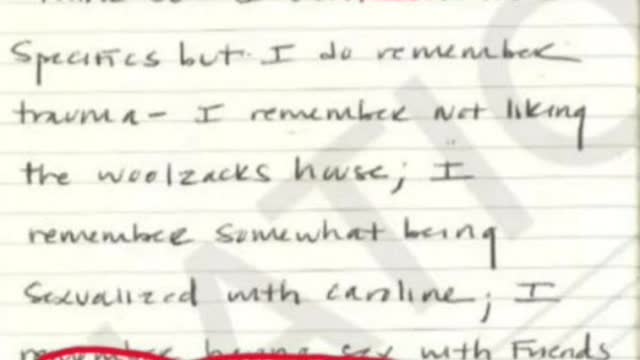 Specifics but I do remember
trauma - I remember not liking
the woolzacks house; I
remember somewhat being
sexualized with caroline; I
with Friends